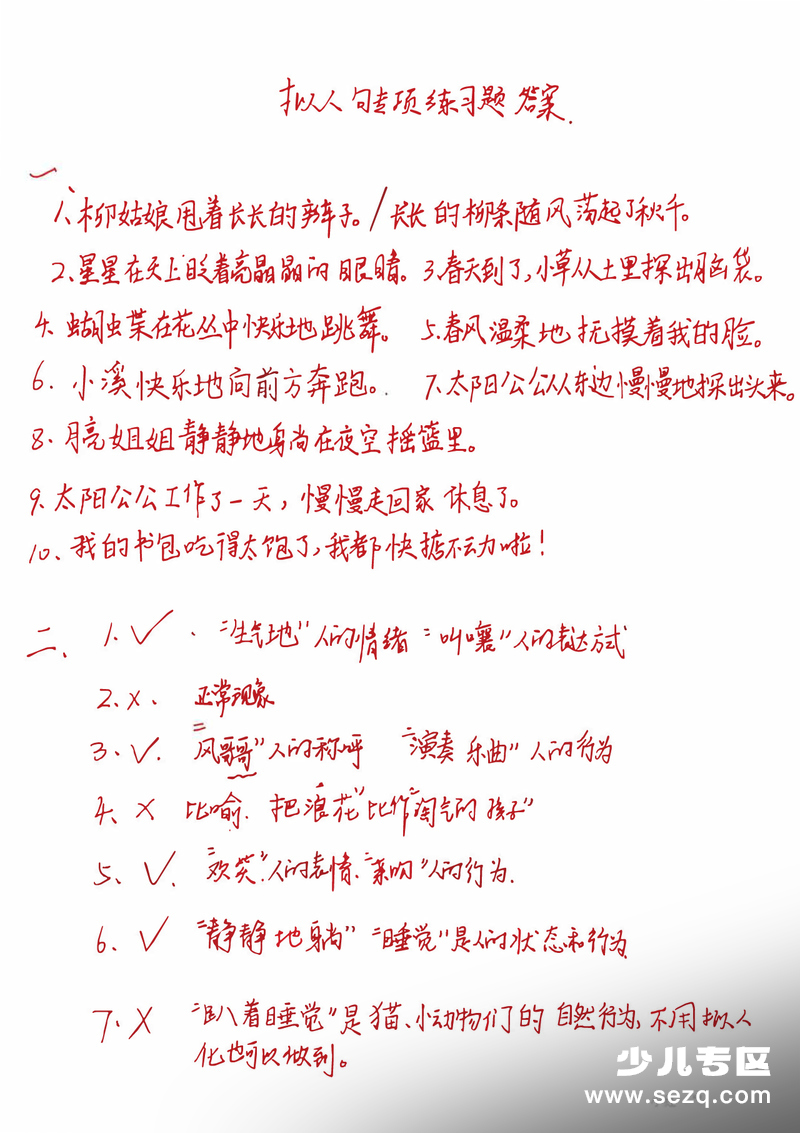 拟人句专项练习题答案.
一、
1、柳姑娘甩着长长的辫子。/长长的柳条随风荡起了秋千。
2、星星在天上眨着亮晶晶的眼睛。 3.春天到了,小草从土里探出脑袋。
4、蝴蝶在花丛中快乐地跳舞。 5.春风温柔地抚摸着我的脸。
6、小溪快乐地向前方奔跑。 7.太阳公公从东边慢慢地探出头来。
8、月亮姐姐静静地躺在夜空摇篮里。
9、太阳公公工作了一天,慢慢走回家休息了。
10、我的书包吃得太饱了,我都快掂不动啦!
二、 1.✓. "生气地"人的情绪 "叫嚷"人的表达方式
2.×. 正常现象
3.✓. "风哥哥"人的称呼 "演奏乐曲"人的行为
4、× 比喻. 把"浪花"比作"淘气的孩子"
5、✓. "欢笑"人的表情."亲吻"人的行为.
6、✓ "静静地躺" "睡觉"是人的状态和行为
7.× "趴着睡觉"是猫、小动物们的自然行为,不用拟人
化也可以做到。
少儿专区
www.sezq.com